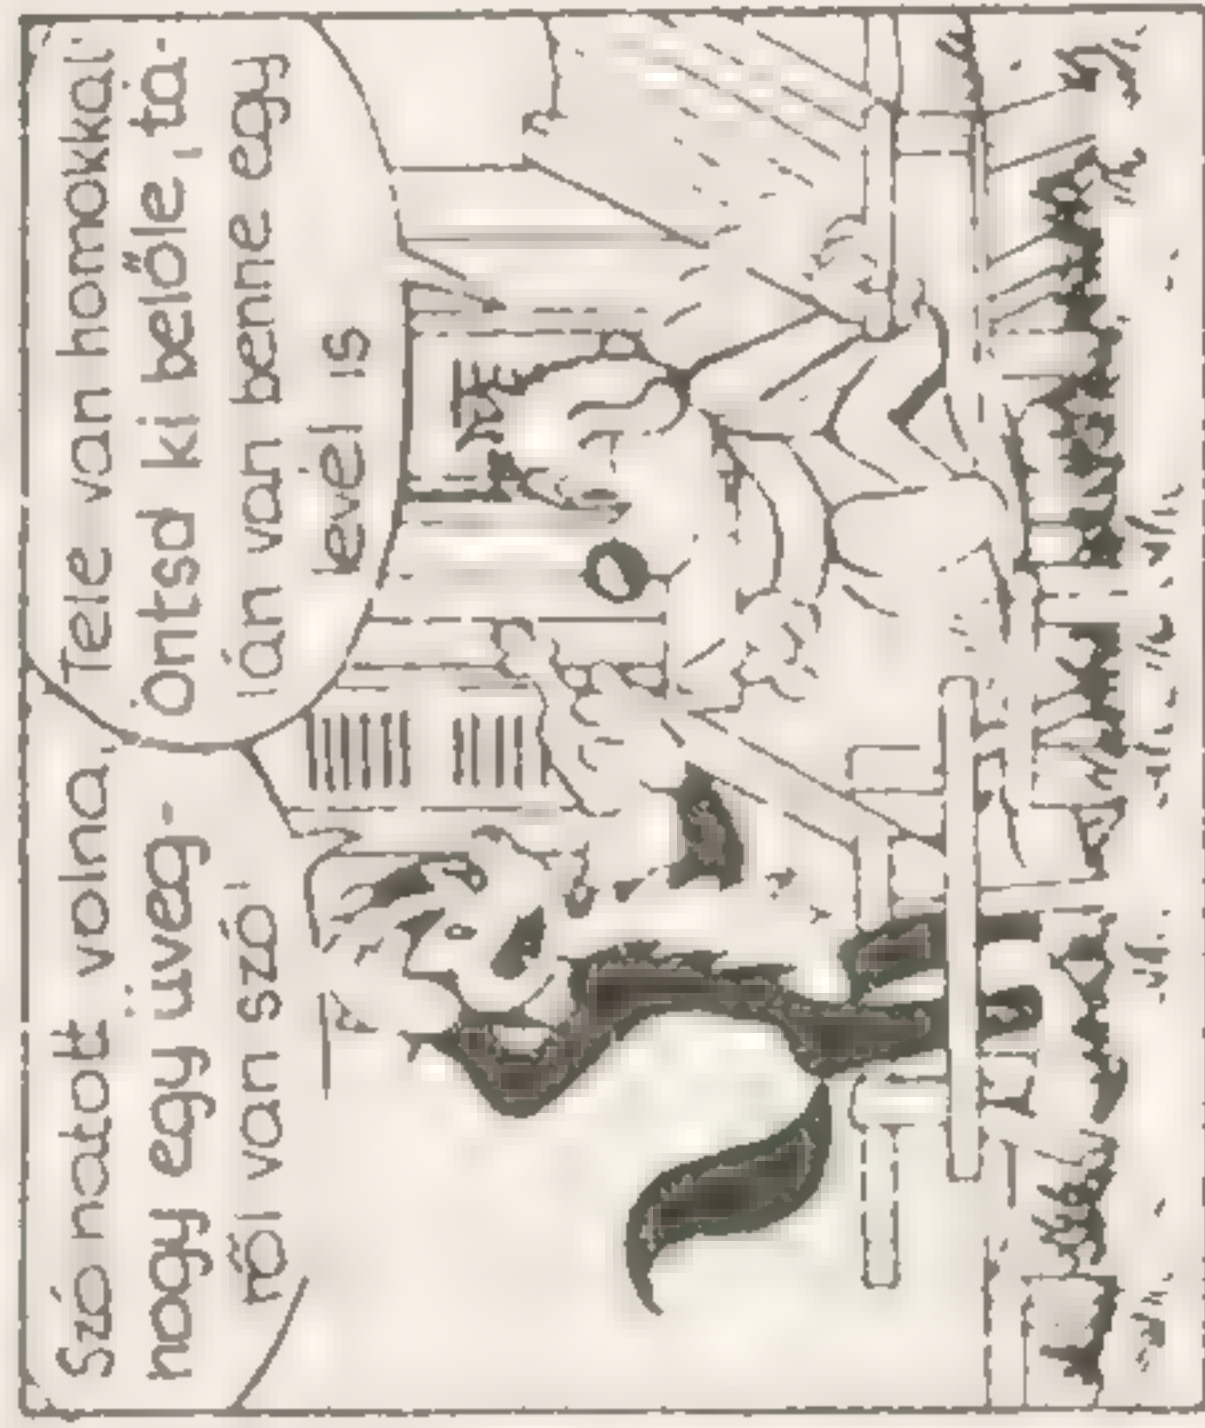 Szó natott volna,
nogy egy üveg-
ről van szó
Tele van homokkal
Öntsd ki belőle, ta-
lán van benne egy
level is